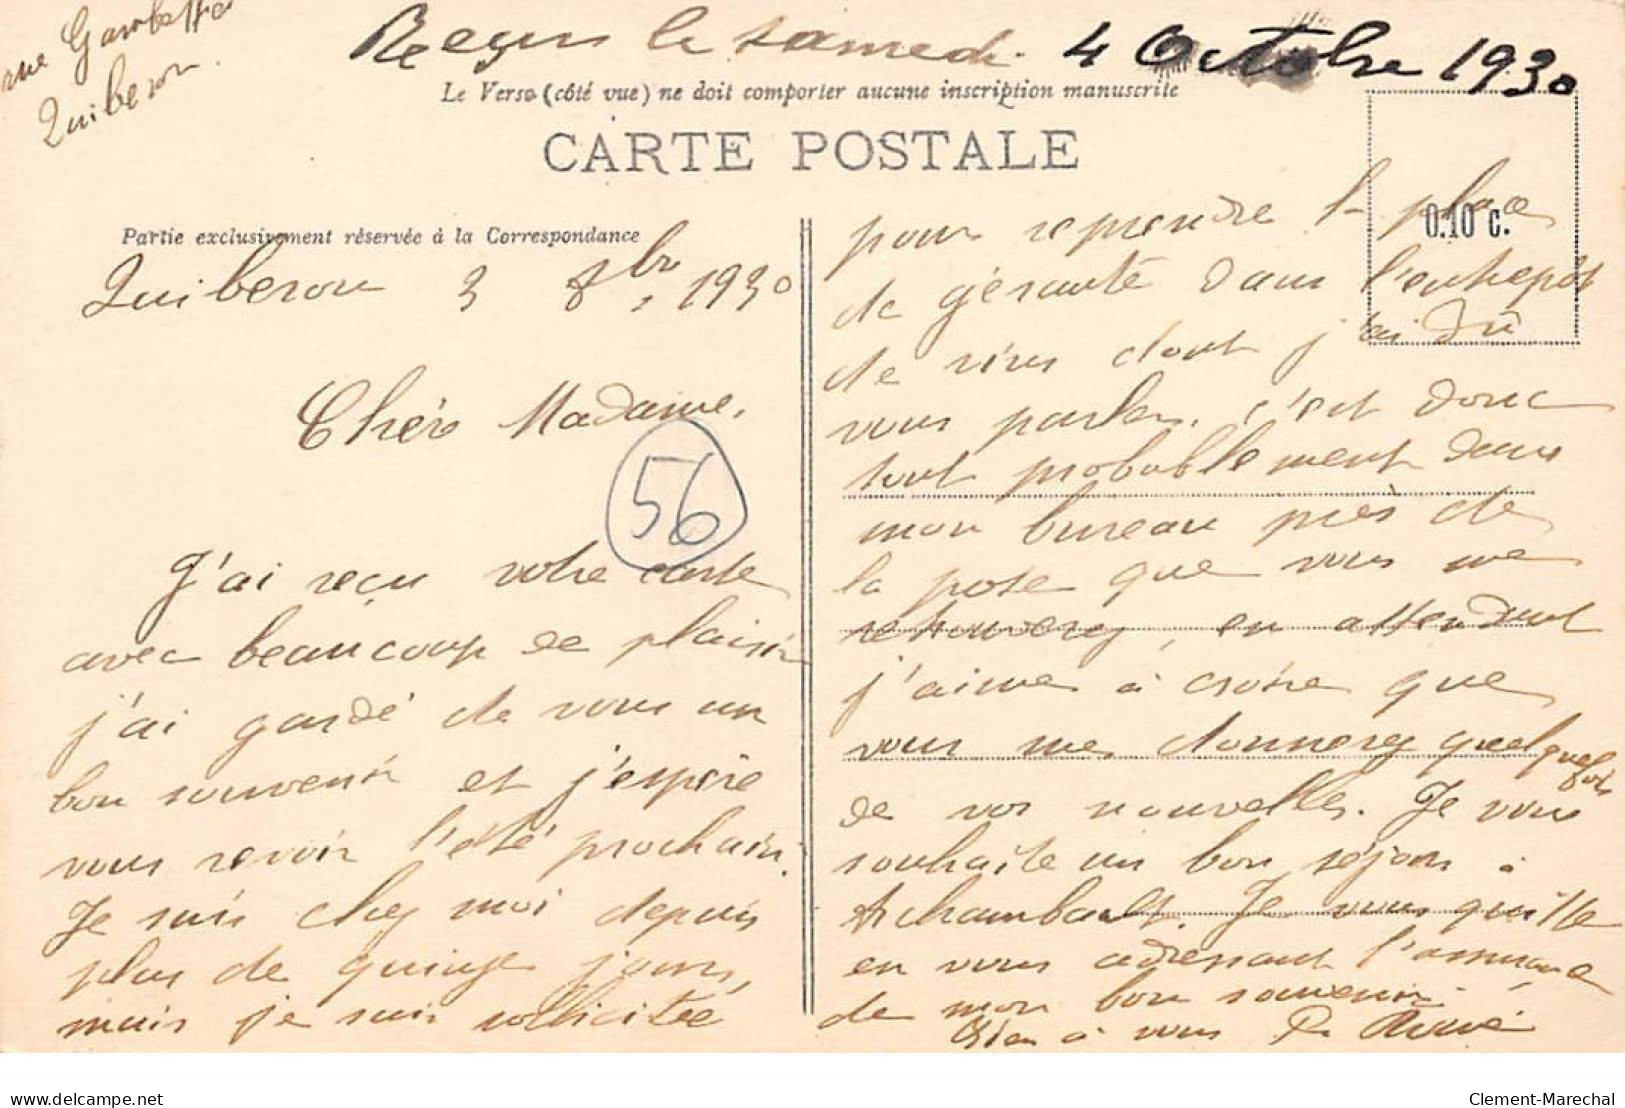 rue Gambetta
Quiberon.
Reçu le samedi 4 Octobre 1930
Le Verso (côté vue) ne doit comporter aucune inscription manuscrite
CARTE POSTALE
0.10 c.
Partie exclusivement réservée à la Correspondance
Quiberon 3 8bre 1930
Chère Madame,
56
J'ai reçu votre carte
avec beaucoup de plaisir
j'ai gardé de vous un
bon souvenir et j'espère
vous revoir l'été prochain.
Je suis chez moi depuis
plus de quinze jours,
mais je suis sollicitée
pour reprendre la place
de gérante dans l'entrepôt
de vins dont j'ai dû
vous parler, c'est donc
tout probablement dans
mon bureau près de
la poste que vous me
retrouverez, en attendant
j'aime à croire que
vous me donnerez quelquefois
de vos nouvelles. Je vous
souhaite un bon séjour à
Archambault. Je vous quitte
en vous adressant l'assurance
de mon bon souvenir.
Bien à vous
Clement-Marechal